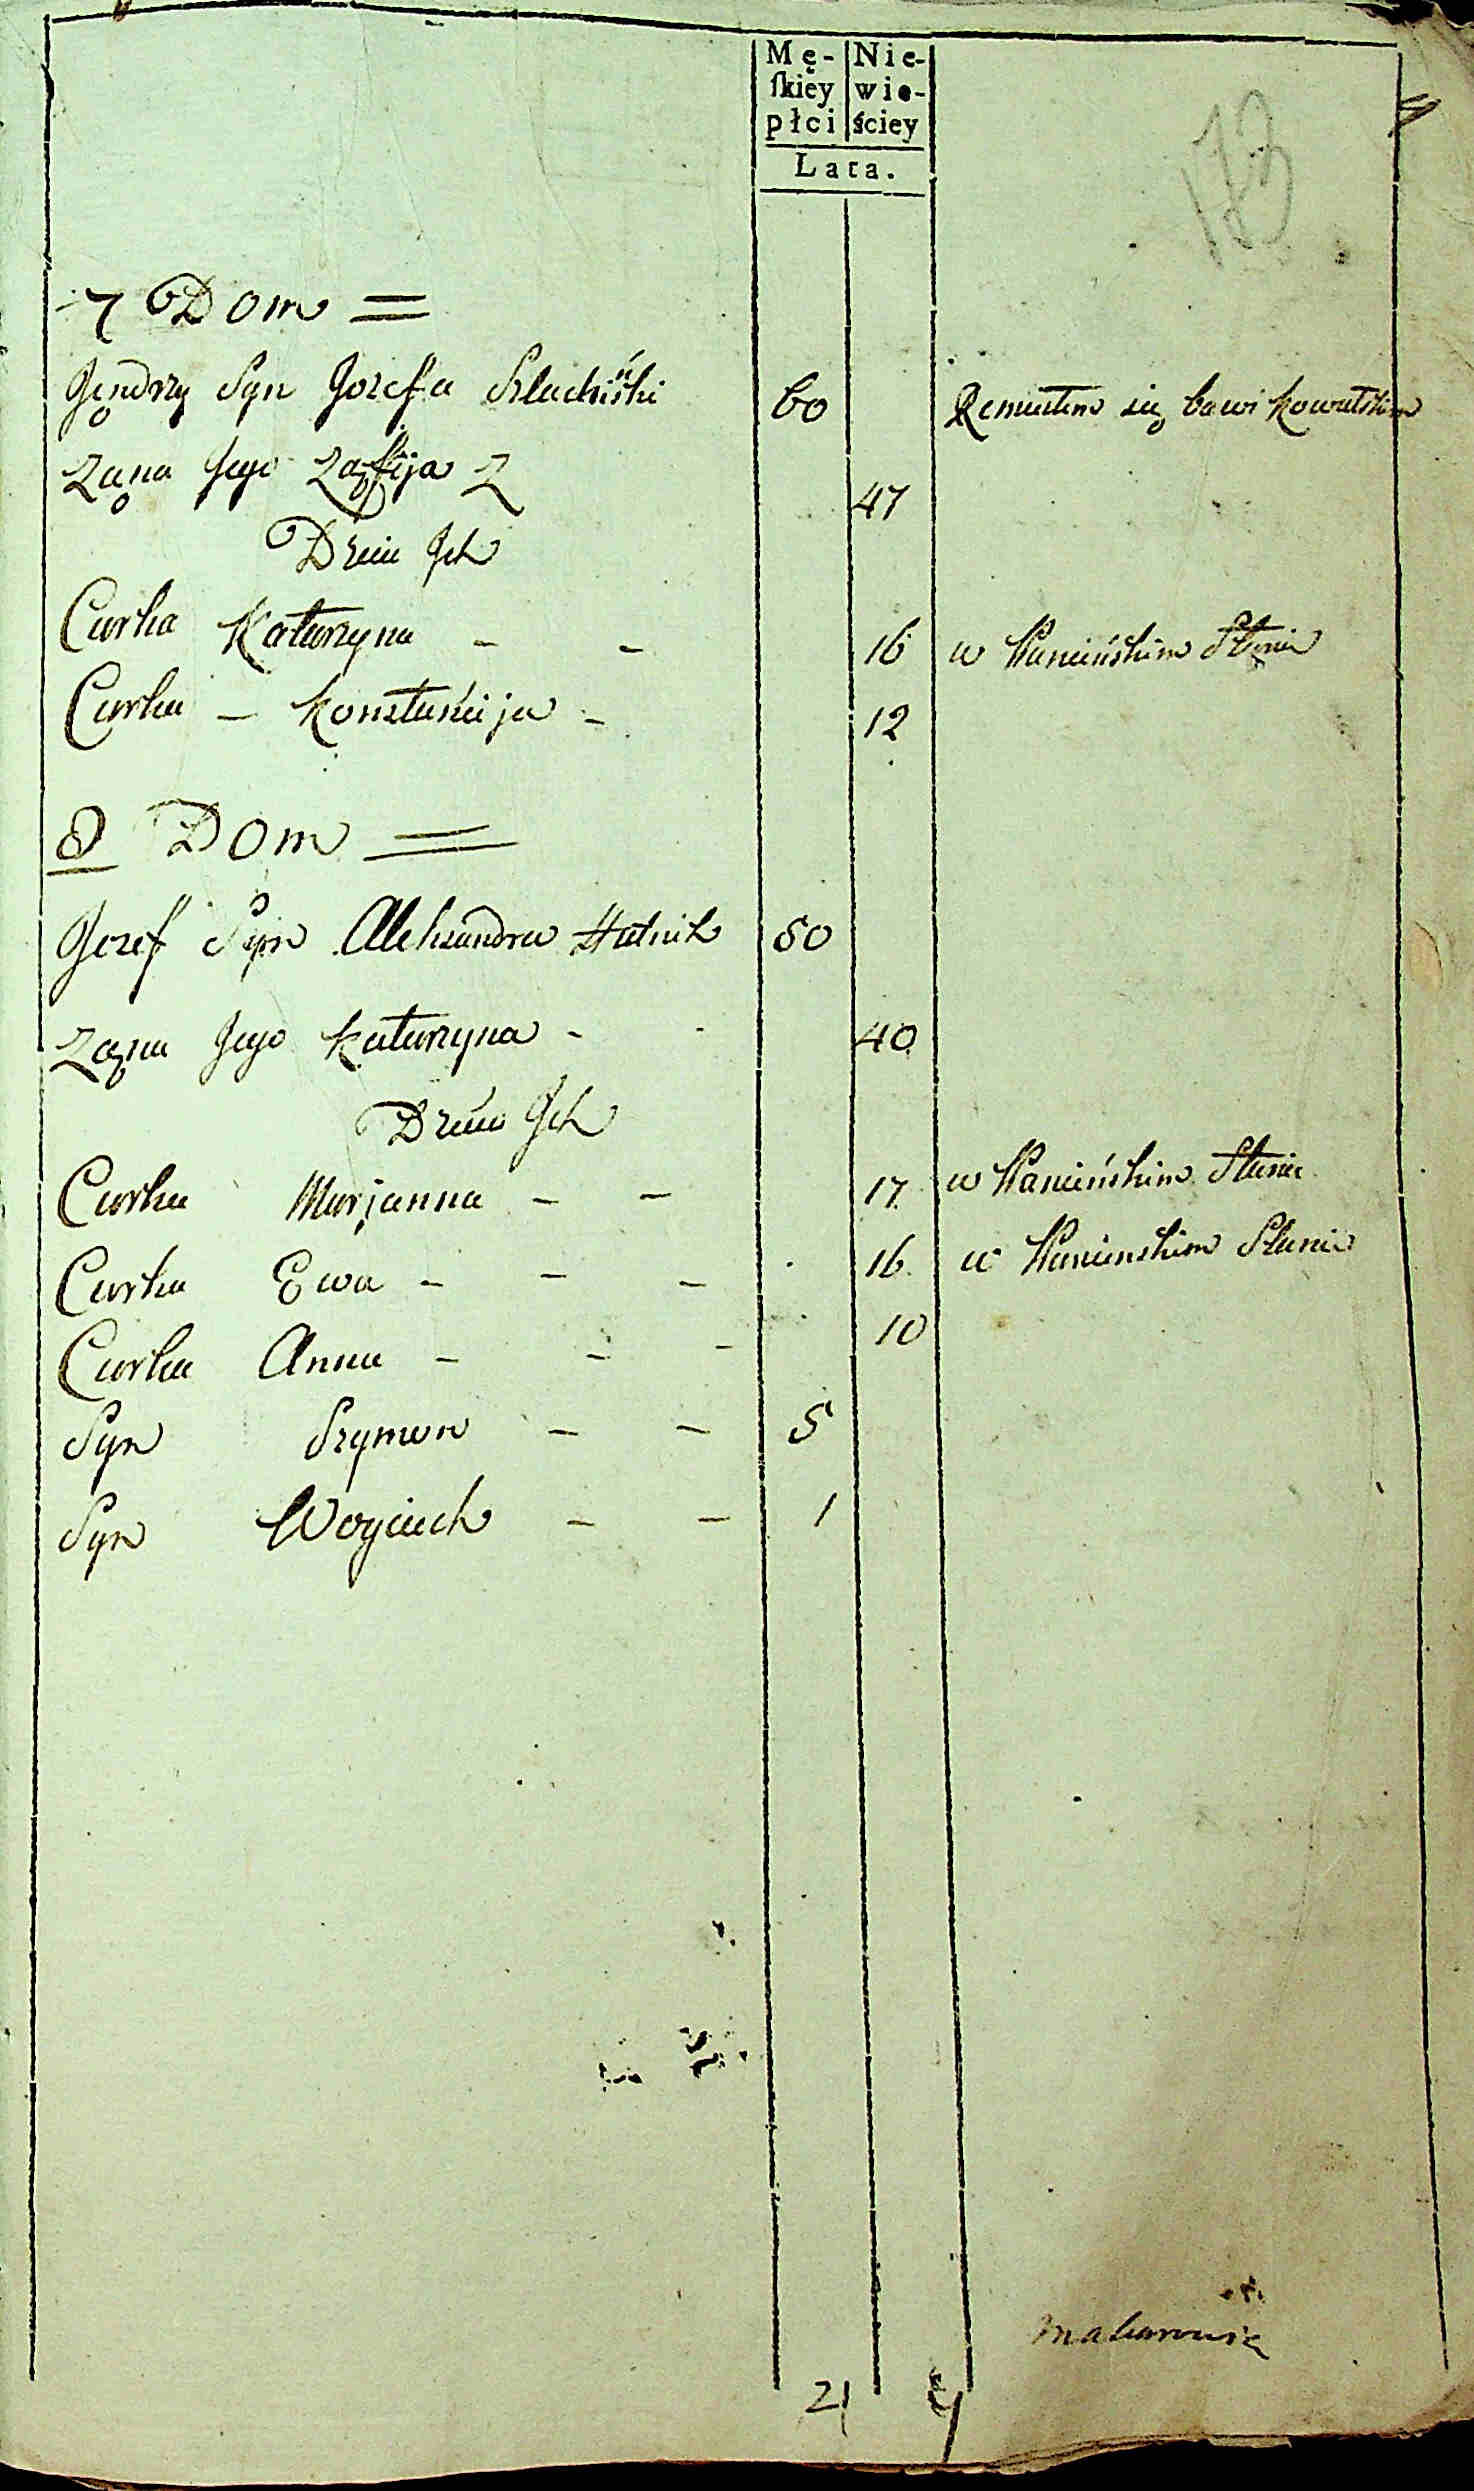 Mę- Nie-
ſkiey wie-
płci ściey
Lata.
173
7 Dom =
Jędrzy Syn Jozefa Szluchiński 60 Remiesłem się bawi kowalskim
Zona Jego Zofija 47
Dzieci Ich
Curka Katarzyna - - 16 w Panieńskim Stanie
Curka - Konstańcija - 12
8 Dom =
Jozef Syn Aleksandra Hatnik 50
Zona Jego Katarzyna - - 40
Dzieci Ich
Curka Marjanna - - 17 w Panieńskim Stanie
Curka Ewa - - - 16 w Panienskim Stanie
Curka Anna - - - 10
Syn Szymon - - 5
Syn Woyciech - - 1
21